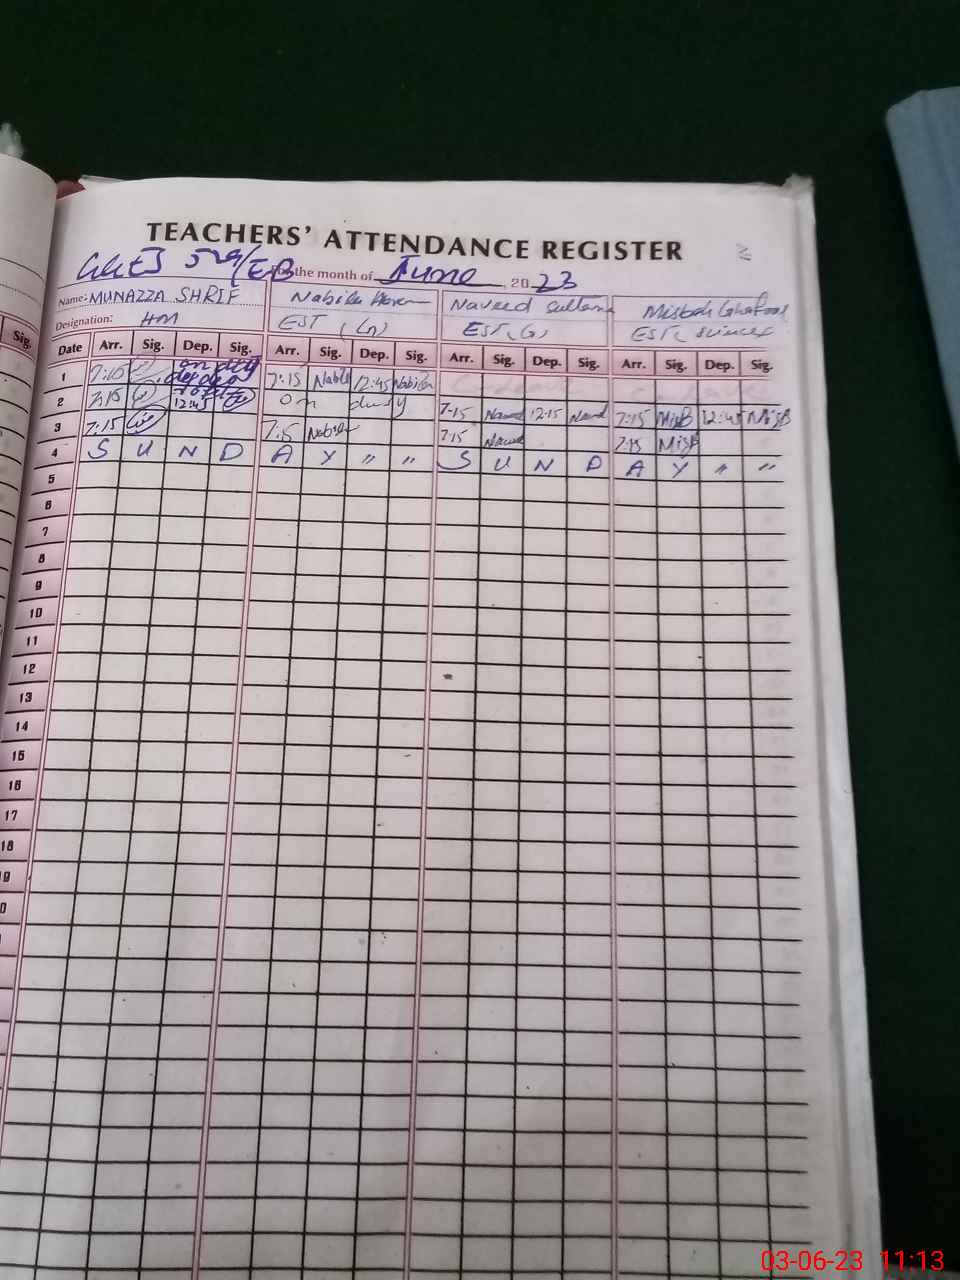 TEACHERS' ATTENDANCE REGISTER
529/EB For the month of June, 2023
Name: MUNAZZA SHRIF Nabila Naveed Sultana Misbah Ghafoor
Designation: HM EST, (G) EST, (G) EST, Science
Sig. Date Arr. Sig. Dep. Sig. Arr. Sig. Dep. Sig. Arr. Sig. Dep. Sig. Arr. Sig. Dep. Sig.
1 7:15 on duty 7:15 Nabila 12:45 Nabila
2 7:15 12:45 On duty 7:15 Naveed 12:15 Naveed 7:15 MisB 12:45 MisB
3 7:15 7:15 Nabila 7:15 Naveed 7:15 MisB
4 S U N D A Y " " S U N D A Y " "
5
6
7
8
9
10
11
12
13
14
15
16
17
18
19
03-06-23 11:13